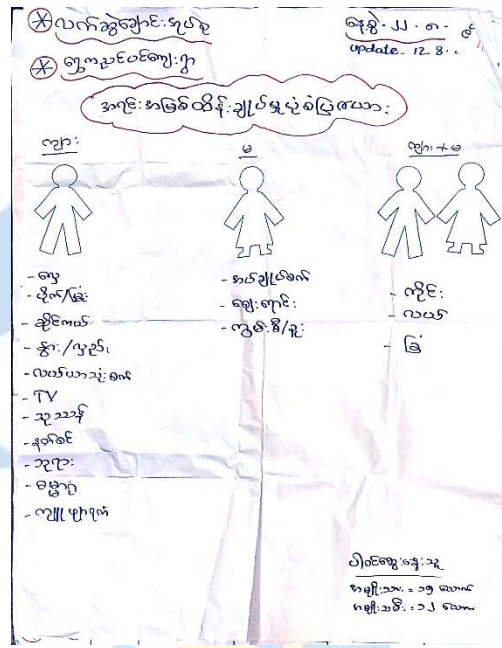 လက်ဆွဲချောင်းအုပ်စု
နေ့စွဲ - ၂၂ - ၈ -
update - 12. 8 . .
ကျေးရွာ
အရင်းအမြစ်ထိန်းချုပ်မှုပုံစံပြဇယား
ကျား
မ
ကျား + မ
- လှေ
- ပိုက်/မြှုံး
- ဆိုင်ကယ်
- နွား/လှည်း
- လယ်ယာသုံးစက်
- TV
- သုဿာန်
- နတ်စင်
- ဘုရား
- ဓမ္မာရုံ
- အပ်ချုပ်စက်
- ဈေးရောင်း
- ကွမ်းစီ/ရူး
- ကိုင်း
- လယ်
- ခြံ
ပါဝင်ဆွေးနွေးသူ
အမျိုးသား = ၁၅ ယောက်
အမျိုးသမီး = ၁၂ ယောက်